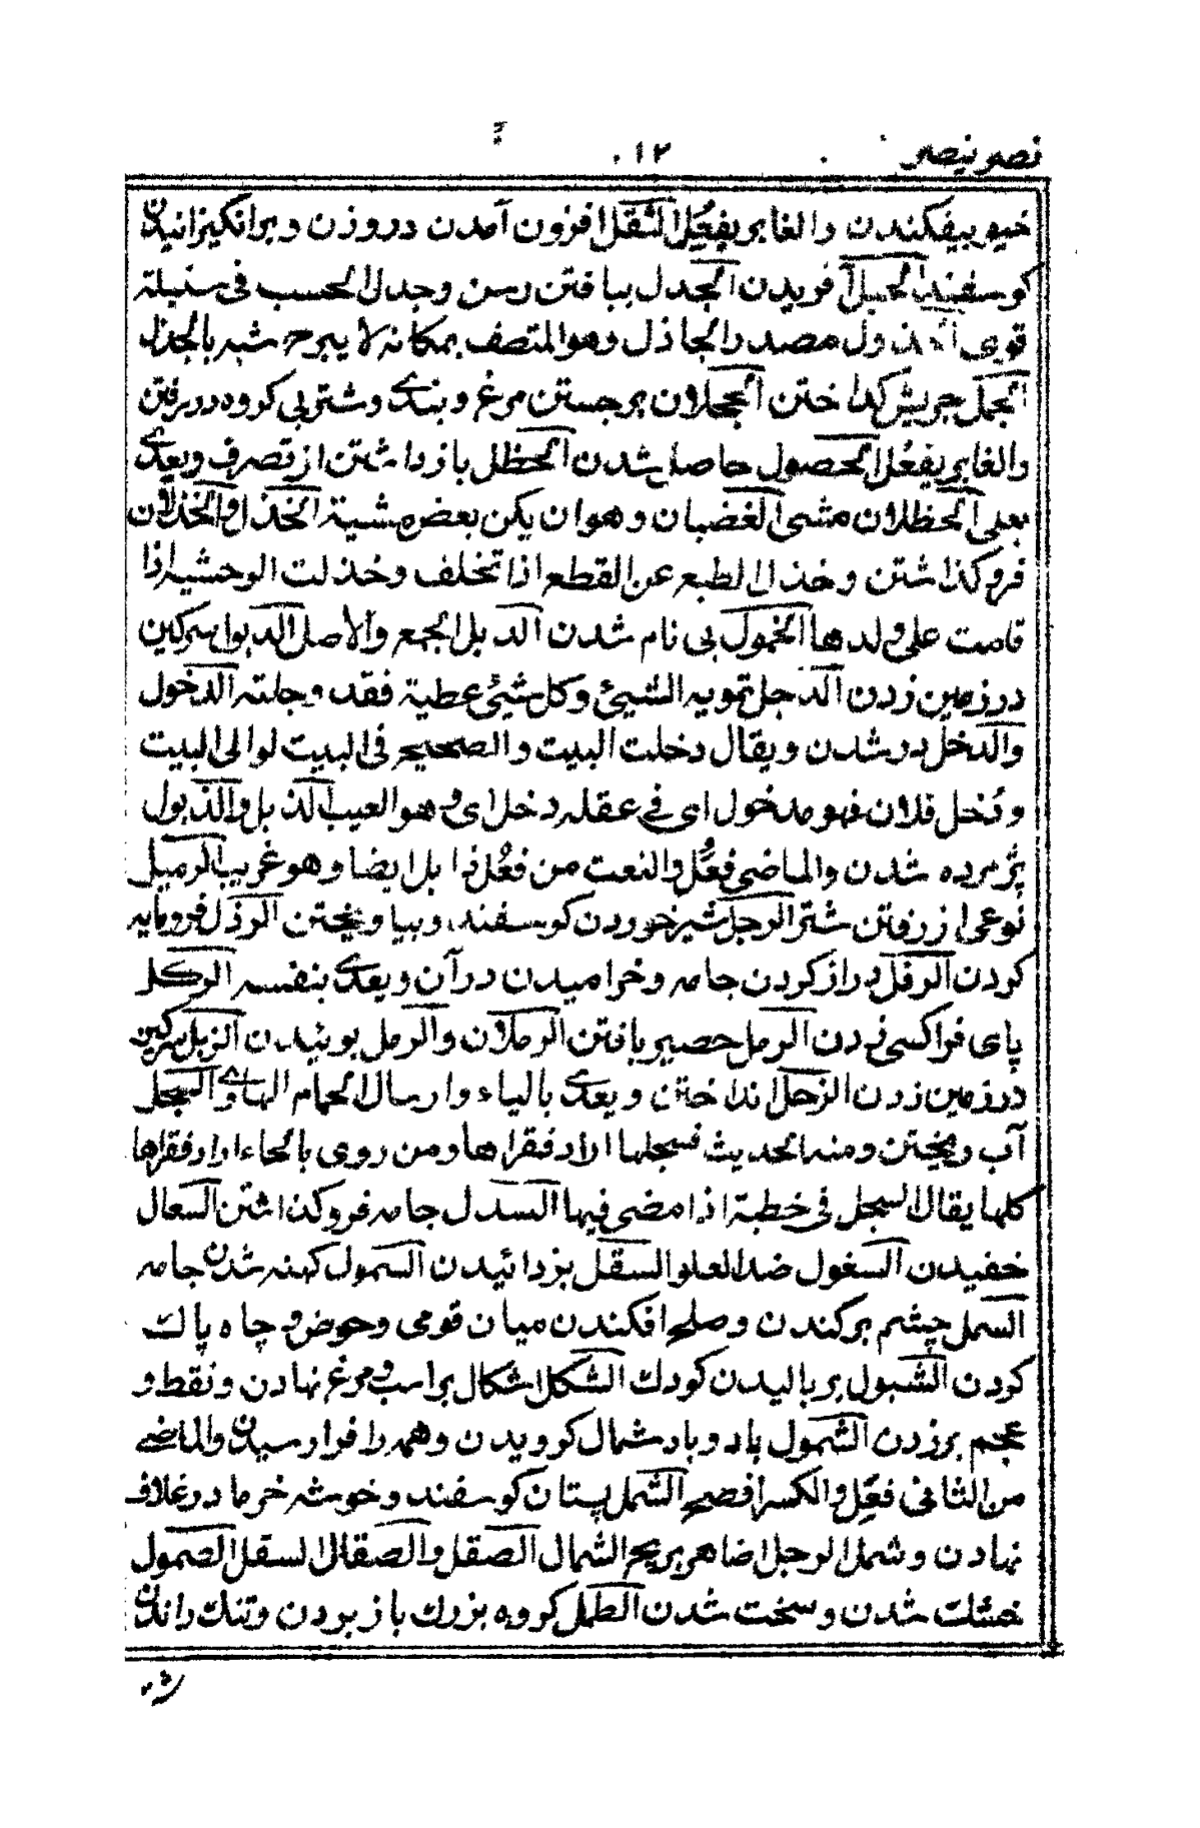 نصر ينصر ١٢
خيو بيفكندن والغابر يفعُل الثقل افزون آمدن در وزن و برانگيزانيدن
كوسفند الجبل آفريدن الجدل ببافتن رسن وجدل الحب فى سنبلة
قوى ول مصدر الجاذل وهو المتصف بمكانه لا يبرح شبه بالجذل
الجمل چربش گداختن الحجلان برجستن مرغ و بندى و شتر پى كروه در رفتن
والغابر يفعُل الحصول حاصل شدن الحظل باز داشتن از تصرف ويعدى
بعلى الحظلان مشى الغضبان وهو ان يكن بعض مشيته الخذل والخذلان
فروگذاشتن وخذل الطبع عن القطع اذا تخلف وخذلت الوحشيه اذا
قامت على ولدها الخمول بى نام شدن الدبل الجمع والاصل الدبول سركين
در زمين زدن الدجل تمويه الشيئ وكل شيئ عطية فقد دجلته الدخول
والدخل در شدن ويقال دخلت البيت والصحيح فى البيت لو الى البيت
و دُخل فلان فهو مدخول اى فى عقله دخل اى وهو العيب الذبل والذبول
پژمرده شدن والماضى فعُل والنعت من فعُل ذابل ايضا وهو غريب الرميل
نوعى از رفتن شتر الرجل شير خوردن كوسفند، وبيا ويختن الرذل فرومايه
كردن الرفل دراز كردن جامه وخراميدن در آن ويعدى بنفسه الركل
پاى فرا كسى زدن الرمل حصير بافتن الرملان والرمل پوئيدن الزبل سركين
در زمين زدن الزجل انداختن ويعدى بالياء وارسال الحمام الهادى السجل
آب ريختن ومنه الحديث فسجلها اراد فقراها ومن روى بالحاء اراد فقراها
كلها يقال السجل فى خطبة اذا مضى فيها السدل جامه فروگذاشتن السعال
خفيدن السفول ضد العلو السقل بزدائيدن السمول كهنه شدن جامه
السمل چشم بركندن وصلح افكندن ميان قومى وحوض و چاه پاك
كردن الشبول بر باليدن كودك الشكل اشكال بر اسب و مرغ نهادن و نقط و
عجم بر زدن الشمول باد و باد شمال كرويدن وهمه را فرا رسيدن والماضى
من الثانى فعِل والكسر افصح الشمل پستان كوسفند وخوشه خرما در غلاف
نهادن وشمل الرجل اضاهر بريح الشمال الصقل والصقال السقل الصمول
خشك شدن وسخت شدن الطمل كروه بزرك باز بردن وتنك راندن